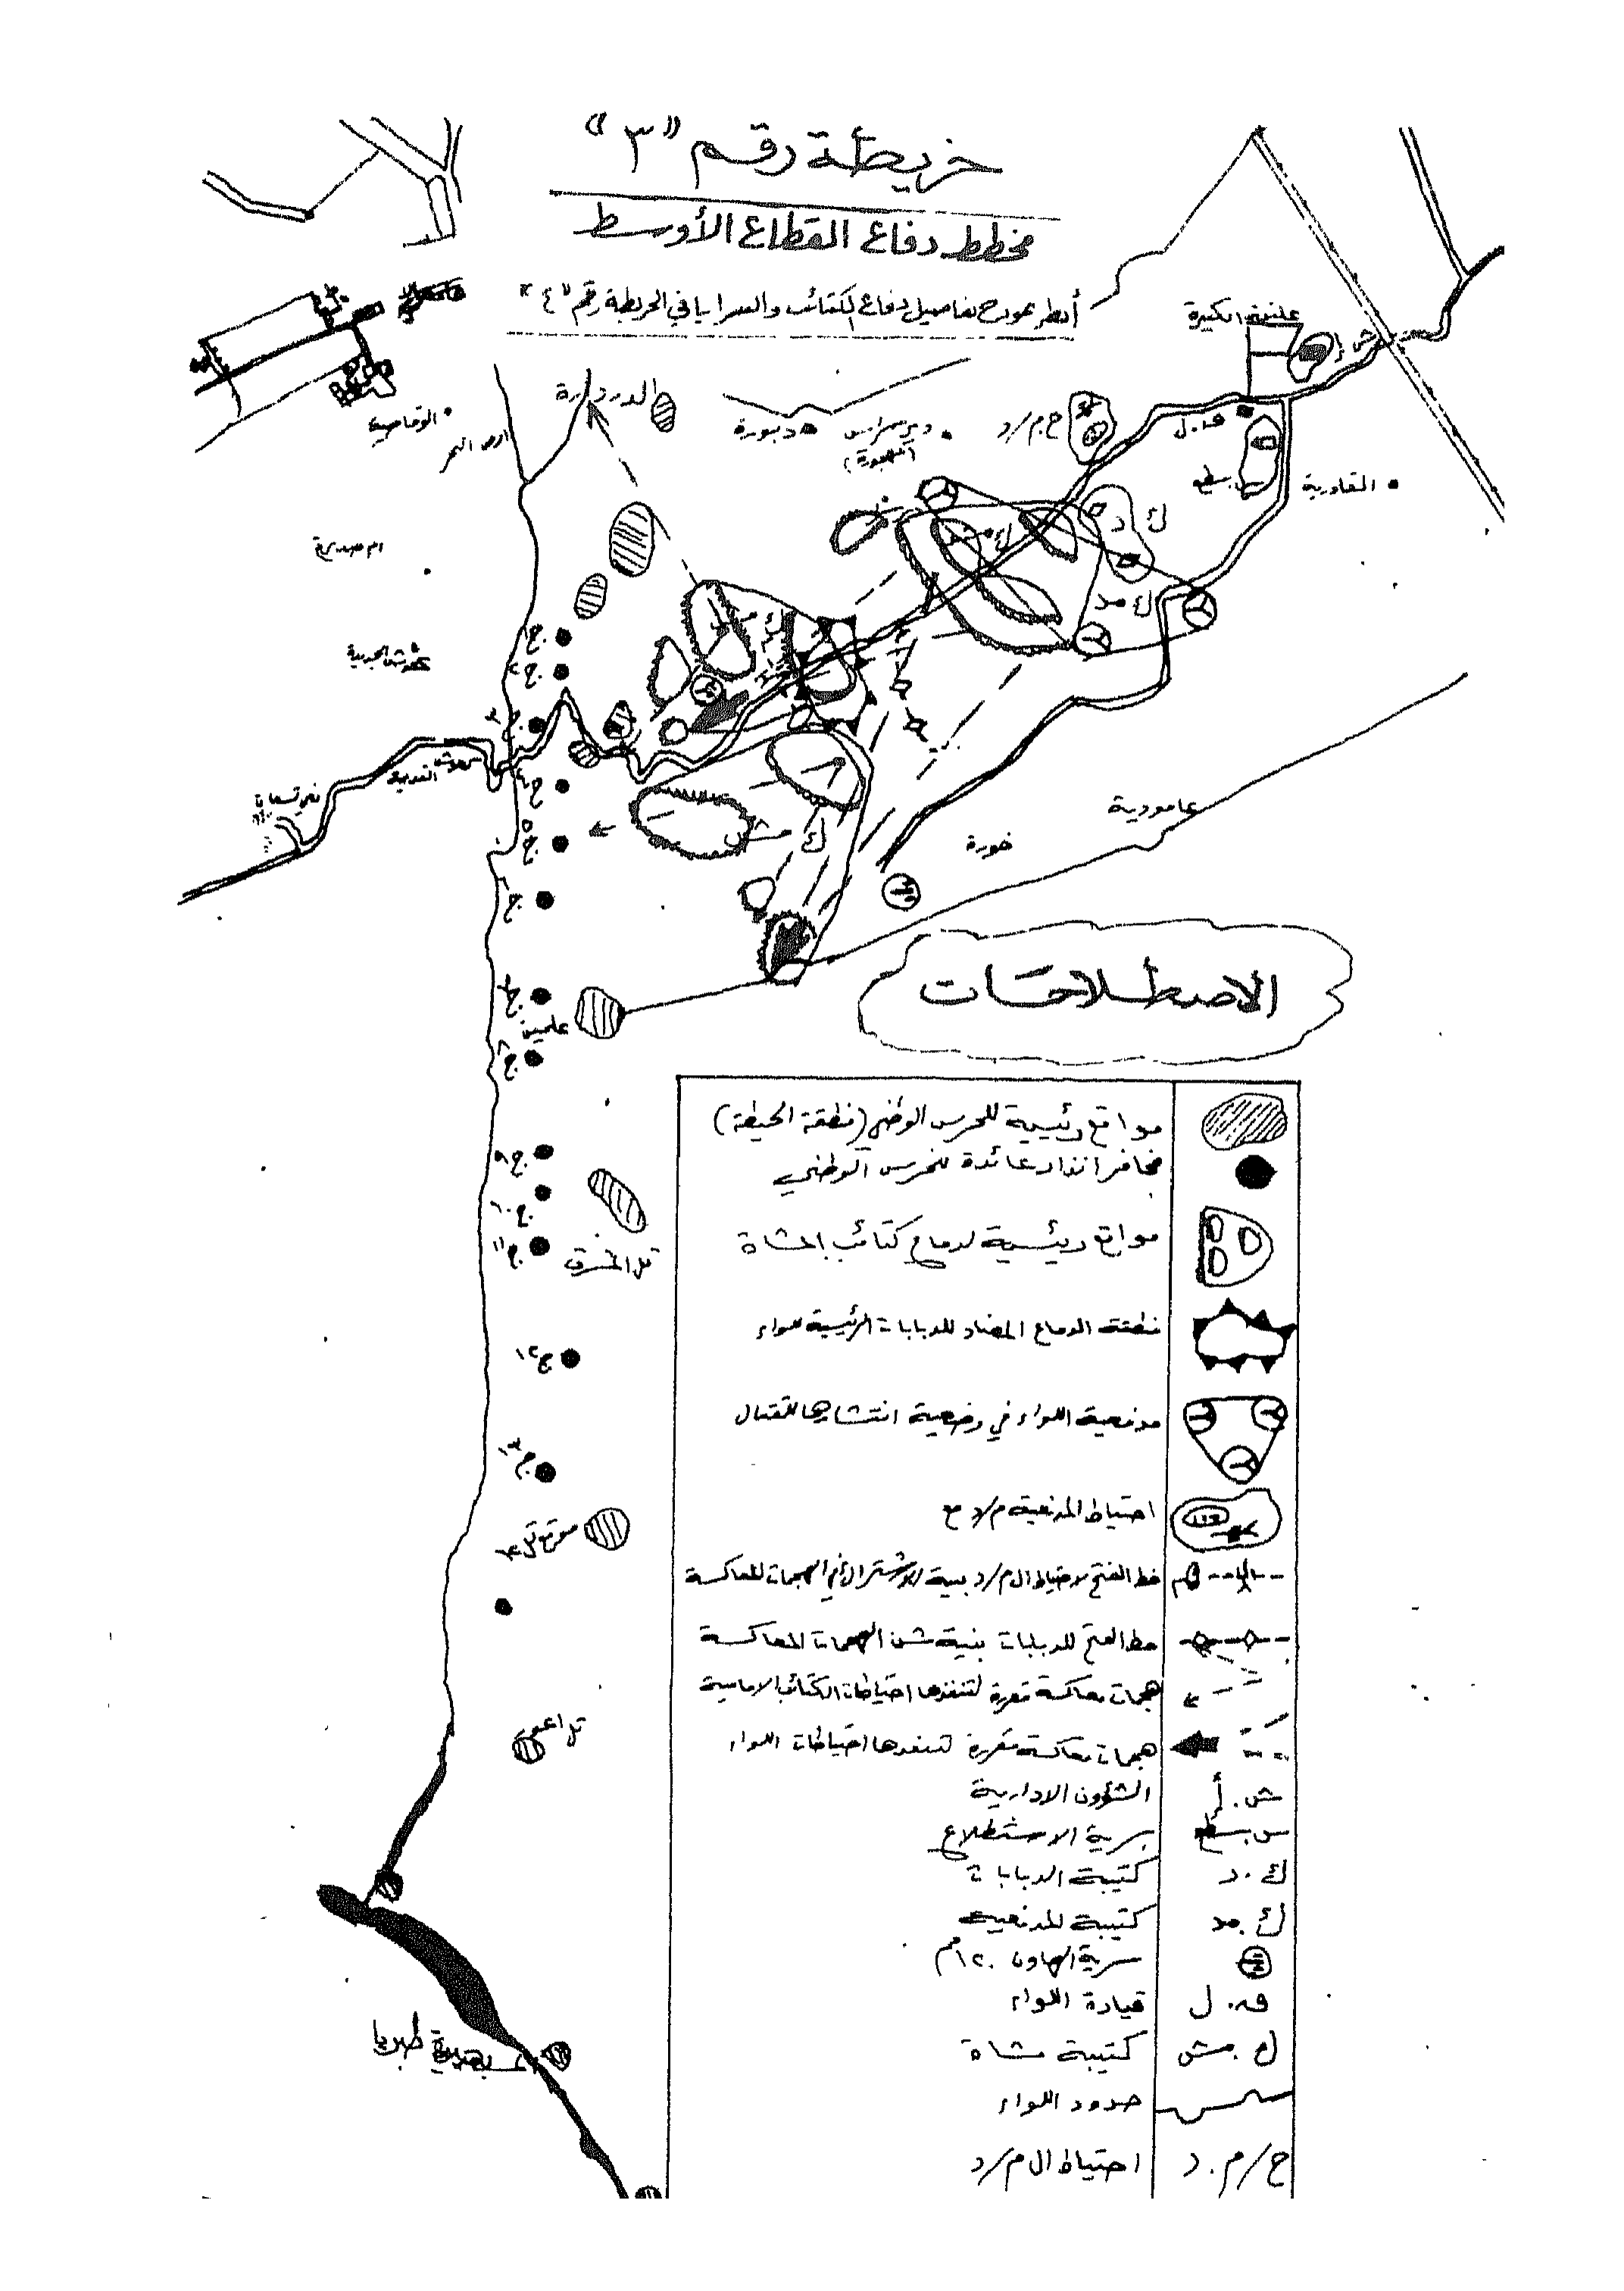 خريطة رقم "٣"
مخطط دفاع القطاع الأوسط
أنظر نموذج تفاصيل دفاع الكتائب والسرايا في الخريطة رقم "٤"
عليقة الكبيرة
الدردارة
دبورة
دير سراس
ح.م/د
ق.ل
القادرية
ك د
ك مد
ك مش
عامودية
خورة
ج١
ج٢
ج٣
ج٤
ج٥
ج٦
ج٧
علمين
ج٨
ج٩
ج١٠
ج١١
تل المشرق
ج١٢
ج١٣
بحيرة طبريا
الاصطلاحات
مواقع رئيسية للحرس الوطني (منطقة الحيطة)
مخافر انذار عائدة للحرس الوطني
مواقع رئيسية لدفاع كتائب المشاة
منطقة الدفاع المضاد للدبابات الرئيسية للواء
مدفعية اللواء في وضعية انتشارها للقتال
احتياط المدفعية م/د ح
خط الفتح لاحتياط ال م/د بنية الاشتراك في الهجمات المعاكسة
خط الفتح للدبابات بنية شن الهجمات المعاكسة
هجمات معاكسة مقررة لتنفذها احتياطات الكتائب الامامية
هجمات معاكسة مقررة لتنفذها احتياطات اللواء
ش.أ الشؤون الادارية
س.سطع سرية الاستطلاع
ك.د كتيبة الدبابات
ك.مد كتيبة المدفعية
سرية الهاون ١٢٠مم
ق.ل قيادة اللواء
ك.مش كتيبة مشاة
حدود اللواء
ح/م.د احتياط ال م/د